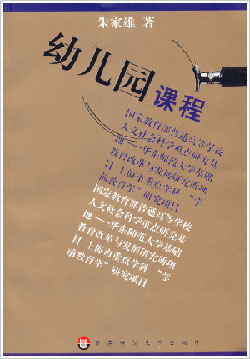 朱家雄 著
幼儿园
课程
国家教育部普通高等学校
人文社会科学重点研究基
地——华东师范大学基础
教育改革与发展研究所项
目 上海市重点学科 “学
前教育学”研究项目
国家教育部普通高等学校
人文社会科学重点研究基
地——华东师范大学基础
教育改革与发展研究所项
目 上海市重点学科 “学
前教育学”研究项目
华东师范大学出版社